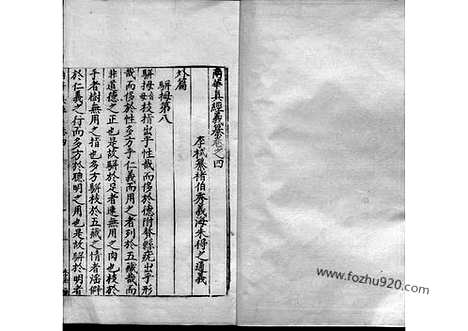 南華真經義纂卷之四
李栻纂褚伯秀義海朱得之通義
外篇
駢拇第八
駢拇枝指出乎性哉而侈於德附贅縣疣出乎形
哉而侈於性多方乎仁義而用之者列於五藏哉而
非道德之正也是故駢於足者連無用之肉也枝於
手者樹無用之指也多方駢枝於五藏之情者淫僻
於仁義之行而多方於聰明之用也是故駢於明者
www.fozhu920.com